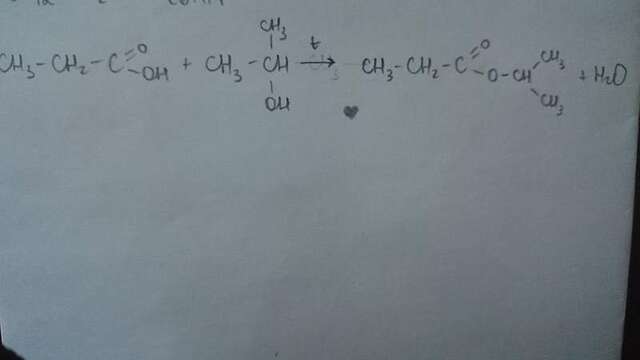 CH₃-CH₂-C(=O)-OH + CH₃-CH(CH₃)-OH →(t) CH₃-CH₂-C(=O)-O-CH(CH₃)-CH₃ + H₂O